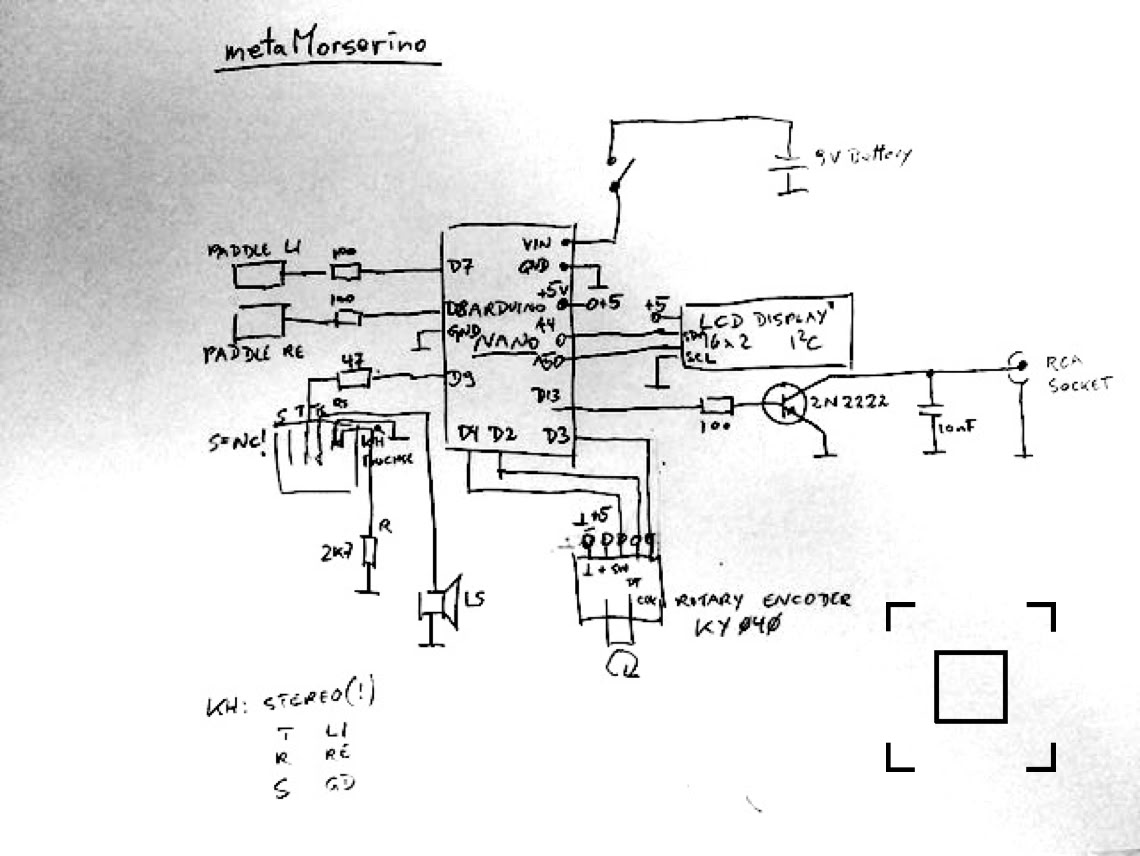 metaMorserino
9V Battery
PADDLE LI
100
D7
VIN
GND
+5V
+5
PADDLE RE
100
D8 ARDUINO
NANO
GND
A4
A5
+5
LCD DISPLAY
16x2 I²C
SDA
SCL
RCA
SOCKET
47
D9
D13
100
2N2222
10nF
S=NC!
S T
KH
D4 D2 D3
R
2K7
LS
+5
+ SW
DT
CLK
ROTARY ENCODER
KY 040
KH: STEREO(!)
T LI
R RE
S GD